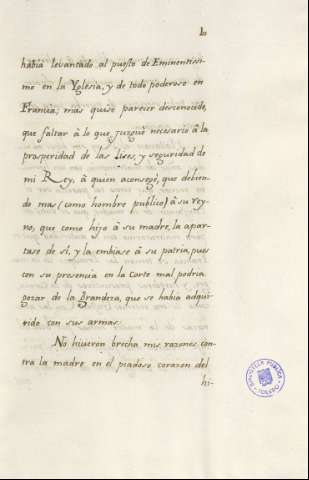 había levantado al puesto de Eminentissi-
mo en la Yglesia, y de todo poderoso en
Francia; mas quise parecer desconocido,
que faltar à lo que juzguè necesario à la
prosperidad de las Lises, y seguridad de
mi Rey, à quien aconsegè, que debien-
do mas (como hombre publico) à su rey-
no, que como hijo à su madre, la apar-
tase de sí, y la embiase à su patria, pues
con su presencia en la Corte mal podria
gozar de la Grandeza, que se había adqui-
rido con sus armas.
No hicieron brecha mis razones con-
tra la madre en el piadoso corazon del
hi-
BIBLIOTECA PUBLICA
TOLEDO